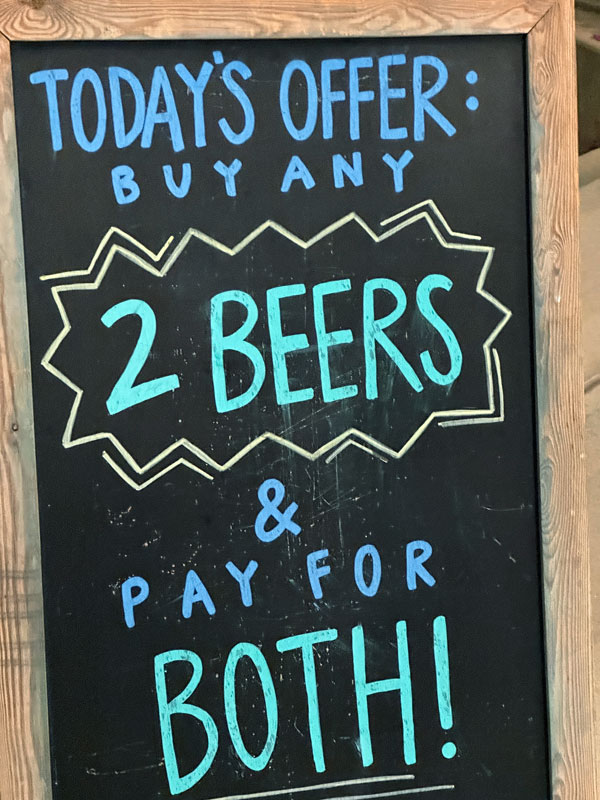 TODAY'S OFFER:
BUY ANY
2 BEERS
&
PAY FOR
BOTH!